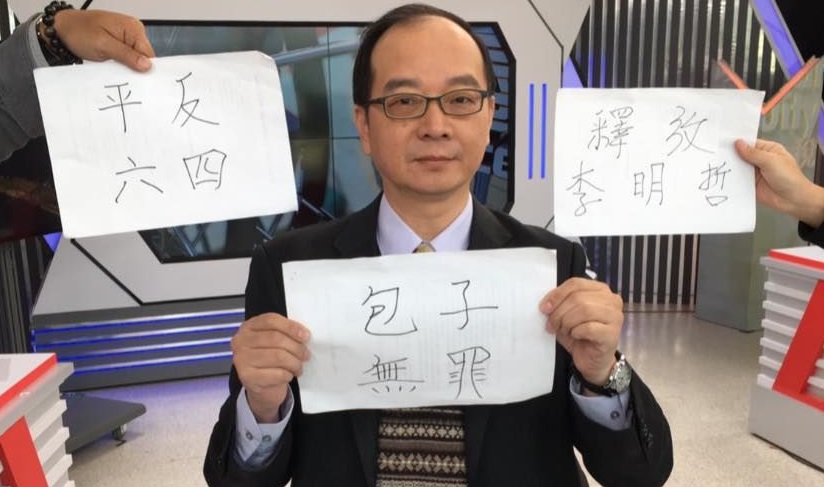 平反
六四
釋放
李明哲
包子
無罪